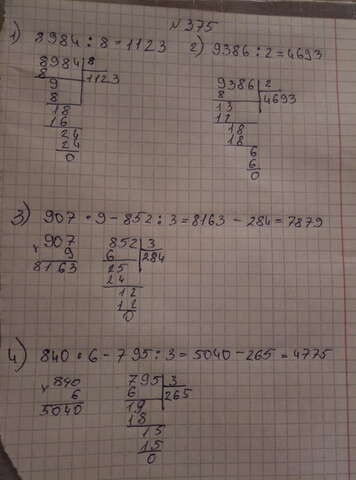 N375
1) 8984 : 8 = 1123 2) 9386 : 2 = 4693
8984 8
8 1123
9
8
18
16
24
24
0
9386 2
8 4693
13
12
18
18
6
6
0
3) 907 · 9 - 852 : 3 = 8163 - 284 = 7879
× 907
9
8163
852 3
6 284
25
24
12
12
0
4) 840 · 6 - 795 : 3 = 5040 - 265 = 4775
× 840
6
5040
795 3
6 265
19
18
15
15
0